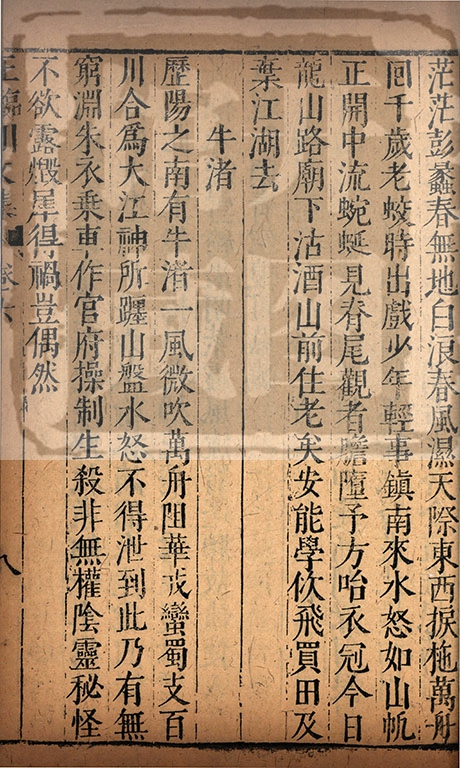 茫茫彭蠡春無地白浪春風濕天際東西捩柂萬舟
回千歲老蛟時出戲少年輕事鎮南來水怒如山帆
正開中流蜿蜒見脊尾觀者膽墮予方咍衣冠今日
龍山路廟下沽酒山前住老矣安能學佽飛買田及
棄江湖去
牛渚
歷陽之南有牛渚一風微吹萬舟阻華戎蠻蜀支百
川合為大江神所躔山盤水怒不得泄到此乃有無
窮淵朱衣乗車作官府操制生殺非無權陰靈秘怪
不欲露燬犀得禍豈偶然
王臨川文集 卷六
八